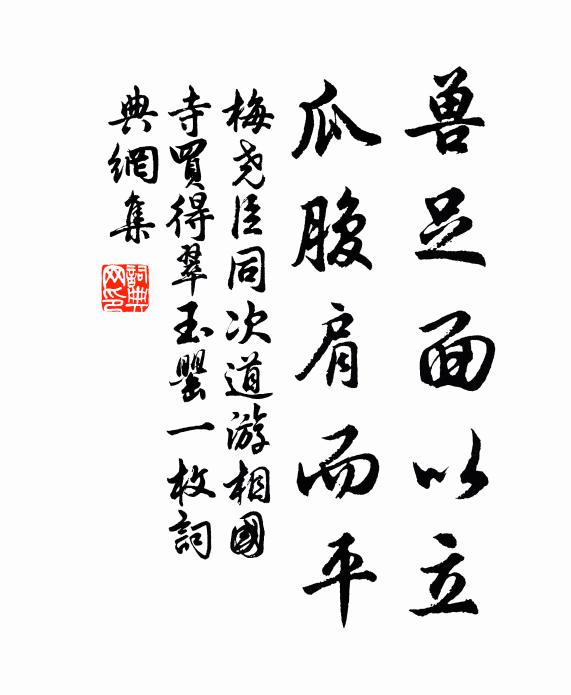 兽足面以立
瓜腹肩而平
梅尧臣同次道游相國
寺買得翠玉罂一枚詞
典網集
詞典
网印